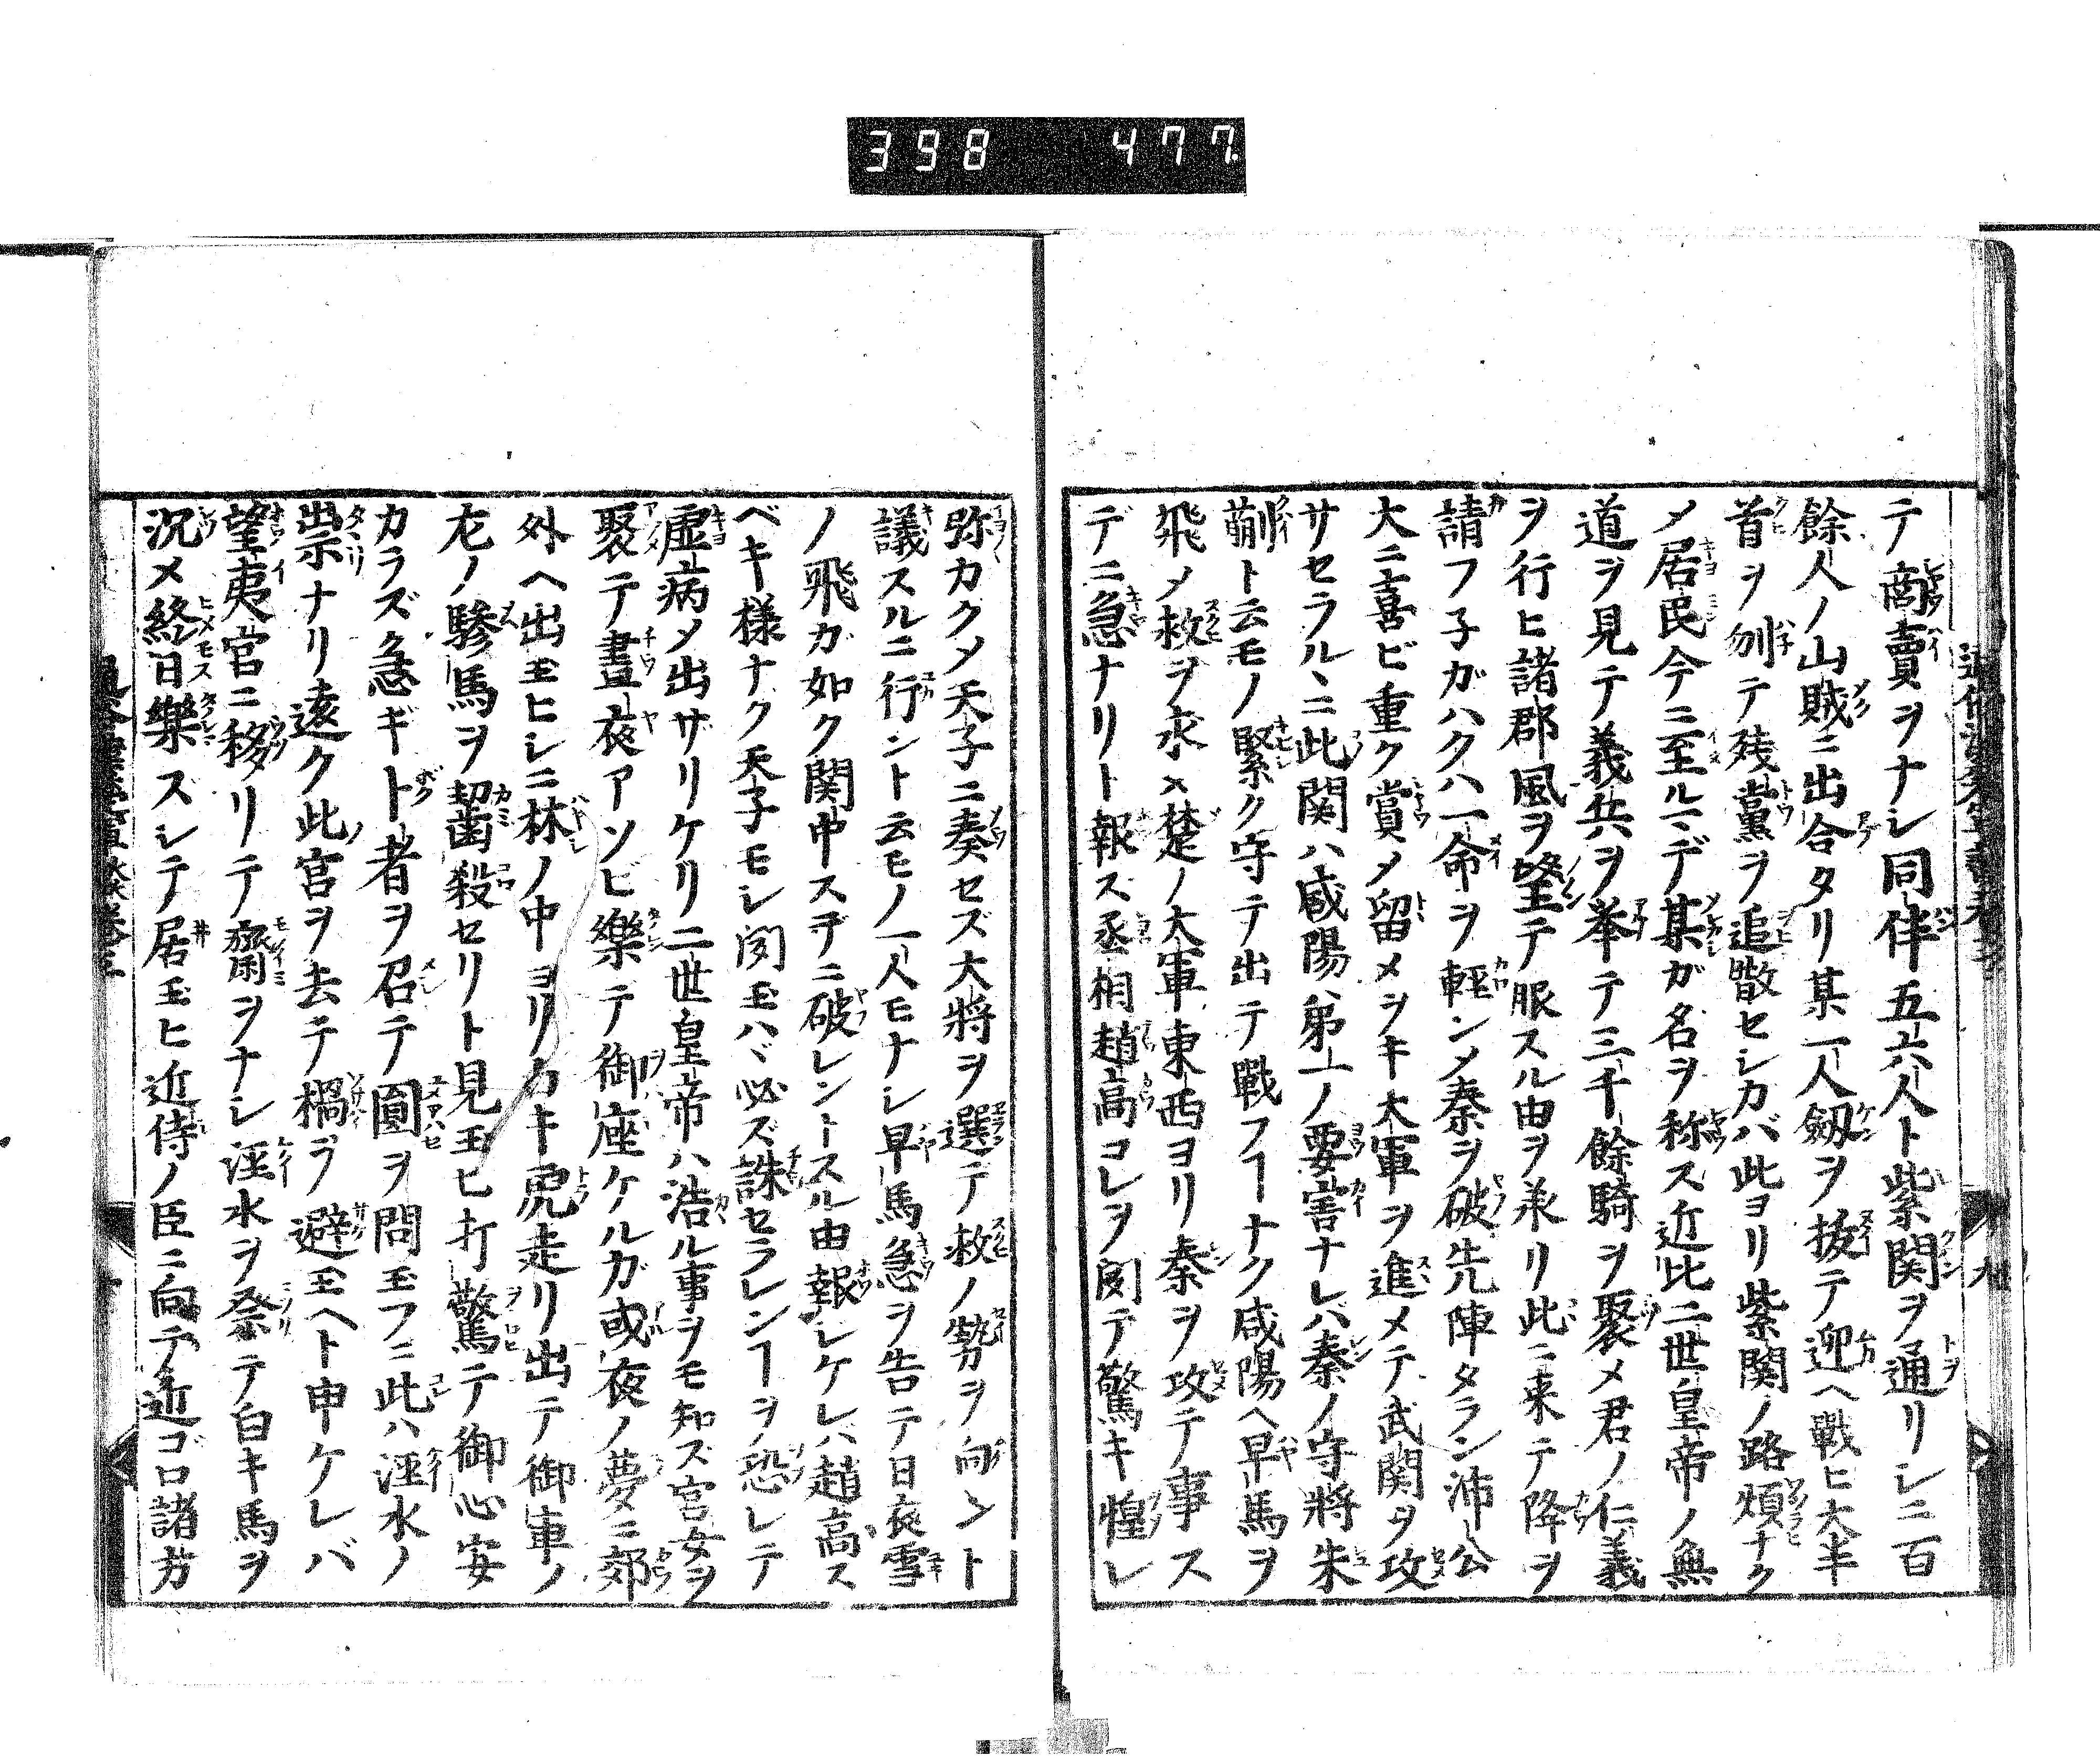 398 477
テ商賣ヲナシ同伴五六人ト紫関ヲ通リシニ百
餘人ノ山賊ニ出合タリ某一人劔ヲ抜テ迎ヘ戰ヒ大半
首ヲ刎テ残黨ヲ追散セシカバ此ヨリ紫関ノ路煩ナク
メ居民今ニ至ルマデ某ガ名ヲ称ス近比二世皇帝ノ無
道ヲ見テ義兵ヲ挙テ三千餘騎ヲ聚メ君ノ仁義
ヲ行ヒ諸郡風ヲ望テ服スル由ヲ承リ此ニ来テ降ヲ
請フ子ガハクハ一命ヲ軽ンメ秦ヲ破先陣タラン沛公
大ニ喜ビ重ク賞メ留メヲキ大軍ヲ進メテ武関ヲ攻
サセラルヽニ此関ハ咸陽第一ノ要害ナレバ秦ノ守將朱
蒯ト云モノ緊ク守テ出テ戰フヿナク咸陽ヘ早馬ヲ
飛メ救ヲ求ム楚ノ大軍東西ヨリ秦ヲ攻テ事ス
デニ急ナリト報ス丞相趙高コレヲ聞テ驚キ惶レ
弥カクメ天子ニ奏セズ大將ヲ選テ救ノ勢ヲ向ント
議スルニ行ント云モノ一人モナシ早馬急ヲ告テ日夜雪
ノ飛ガ如ク関中スデニ破レントスル由報シケレハ趙高ス
ベキ様ナク天子モシ聞玉ハヾ必ズ誅セラレンヿヲ恐レテ
虚病メ出ザリケリ二世皇帝ハ浩ル事ヲモ知ズ宮女ヲ
聚テ晝夜アソビ樂テ御座ケルガ或夜ノ夢ニ郊
外ヘ出玉ヒシニ林ノ中ヨリ白キ虎走リ出テ御車ノ
左ノ驂馬ヲ齧殺セリト見玉ヒ打驚テ御心安
カラズ急ギト者ヲ召テ圓ヲ問玉フニ此ハ涇水ノ
祟ナリ遠ク此宮ヲ去テ禍ヲ避玉ヘト申ケレバ
望夷宮ニ移リテ齋ヲナシ涇水ヲ祭テ白キ馬ヲ
沉メ終日樂ズシテ居玉ヒ近侍ノ臣ニ向テ近ゴロ諸方